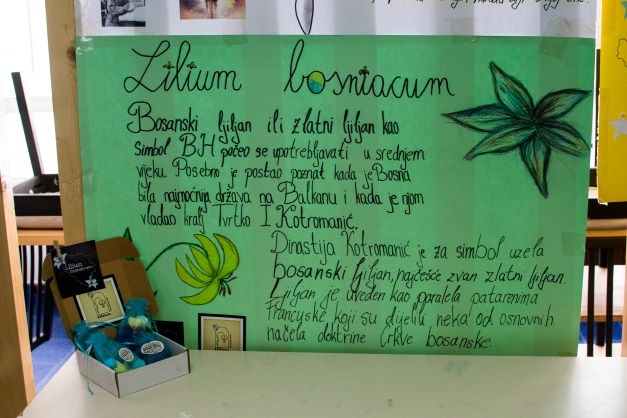 Lilium bosniacum
Bosanski ljiljan ili zlatni ljiljan kao
simbol BH počeo se upotrebljavati u srednjem
vijeku. Posebno je postao poznat kada je Bosna
bila najmoćnija država na Balkanu i kada je njom
vladao kralj Tvrtko I Kotromanić.
Dinastija Kotromanić je za simbol uzela
bosanski ljiljan, najčešće zvan zlatni ljiljan.
Ljiljan je uveden kao paralela patarenima
francuske koji su dijelili neka od osnovnih
načela doktrine Crkve bosanske.
Lilium